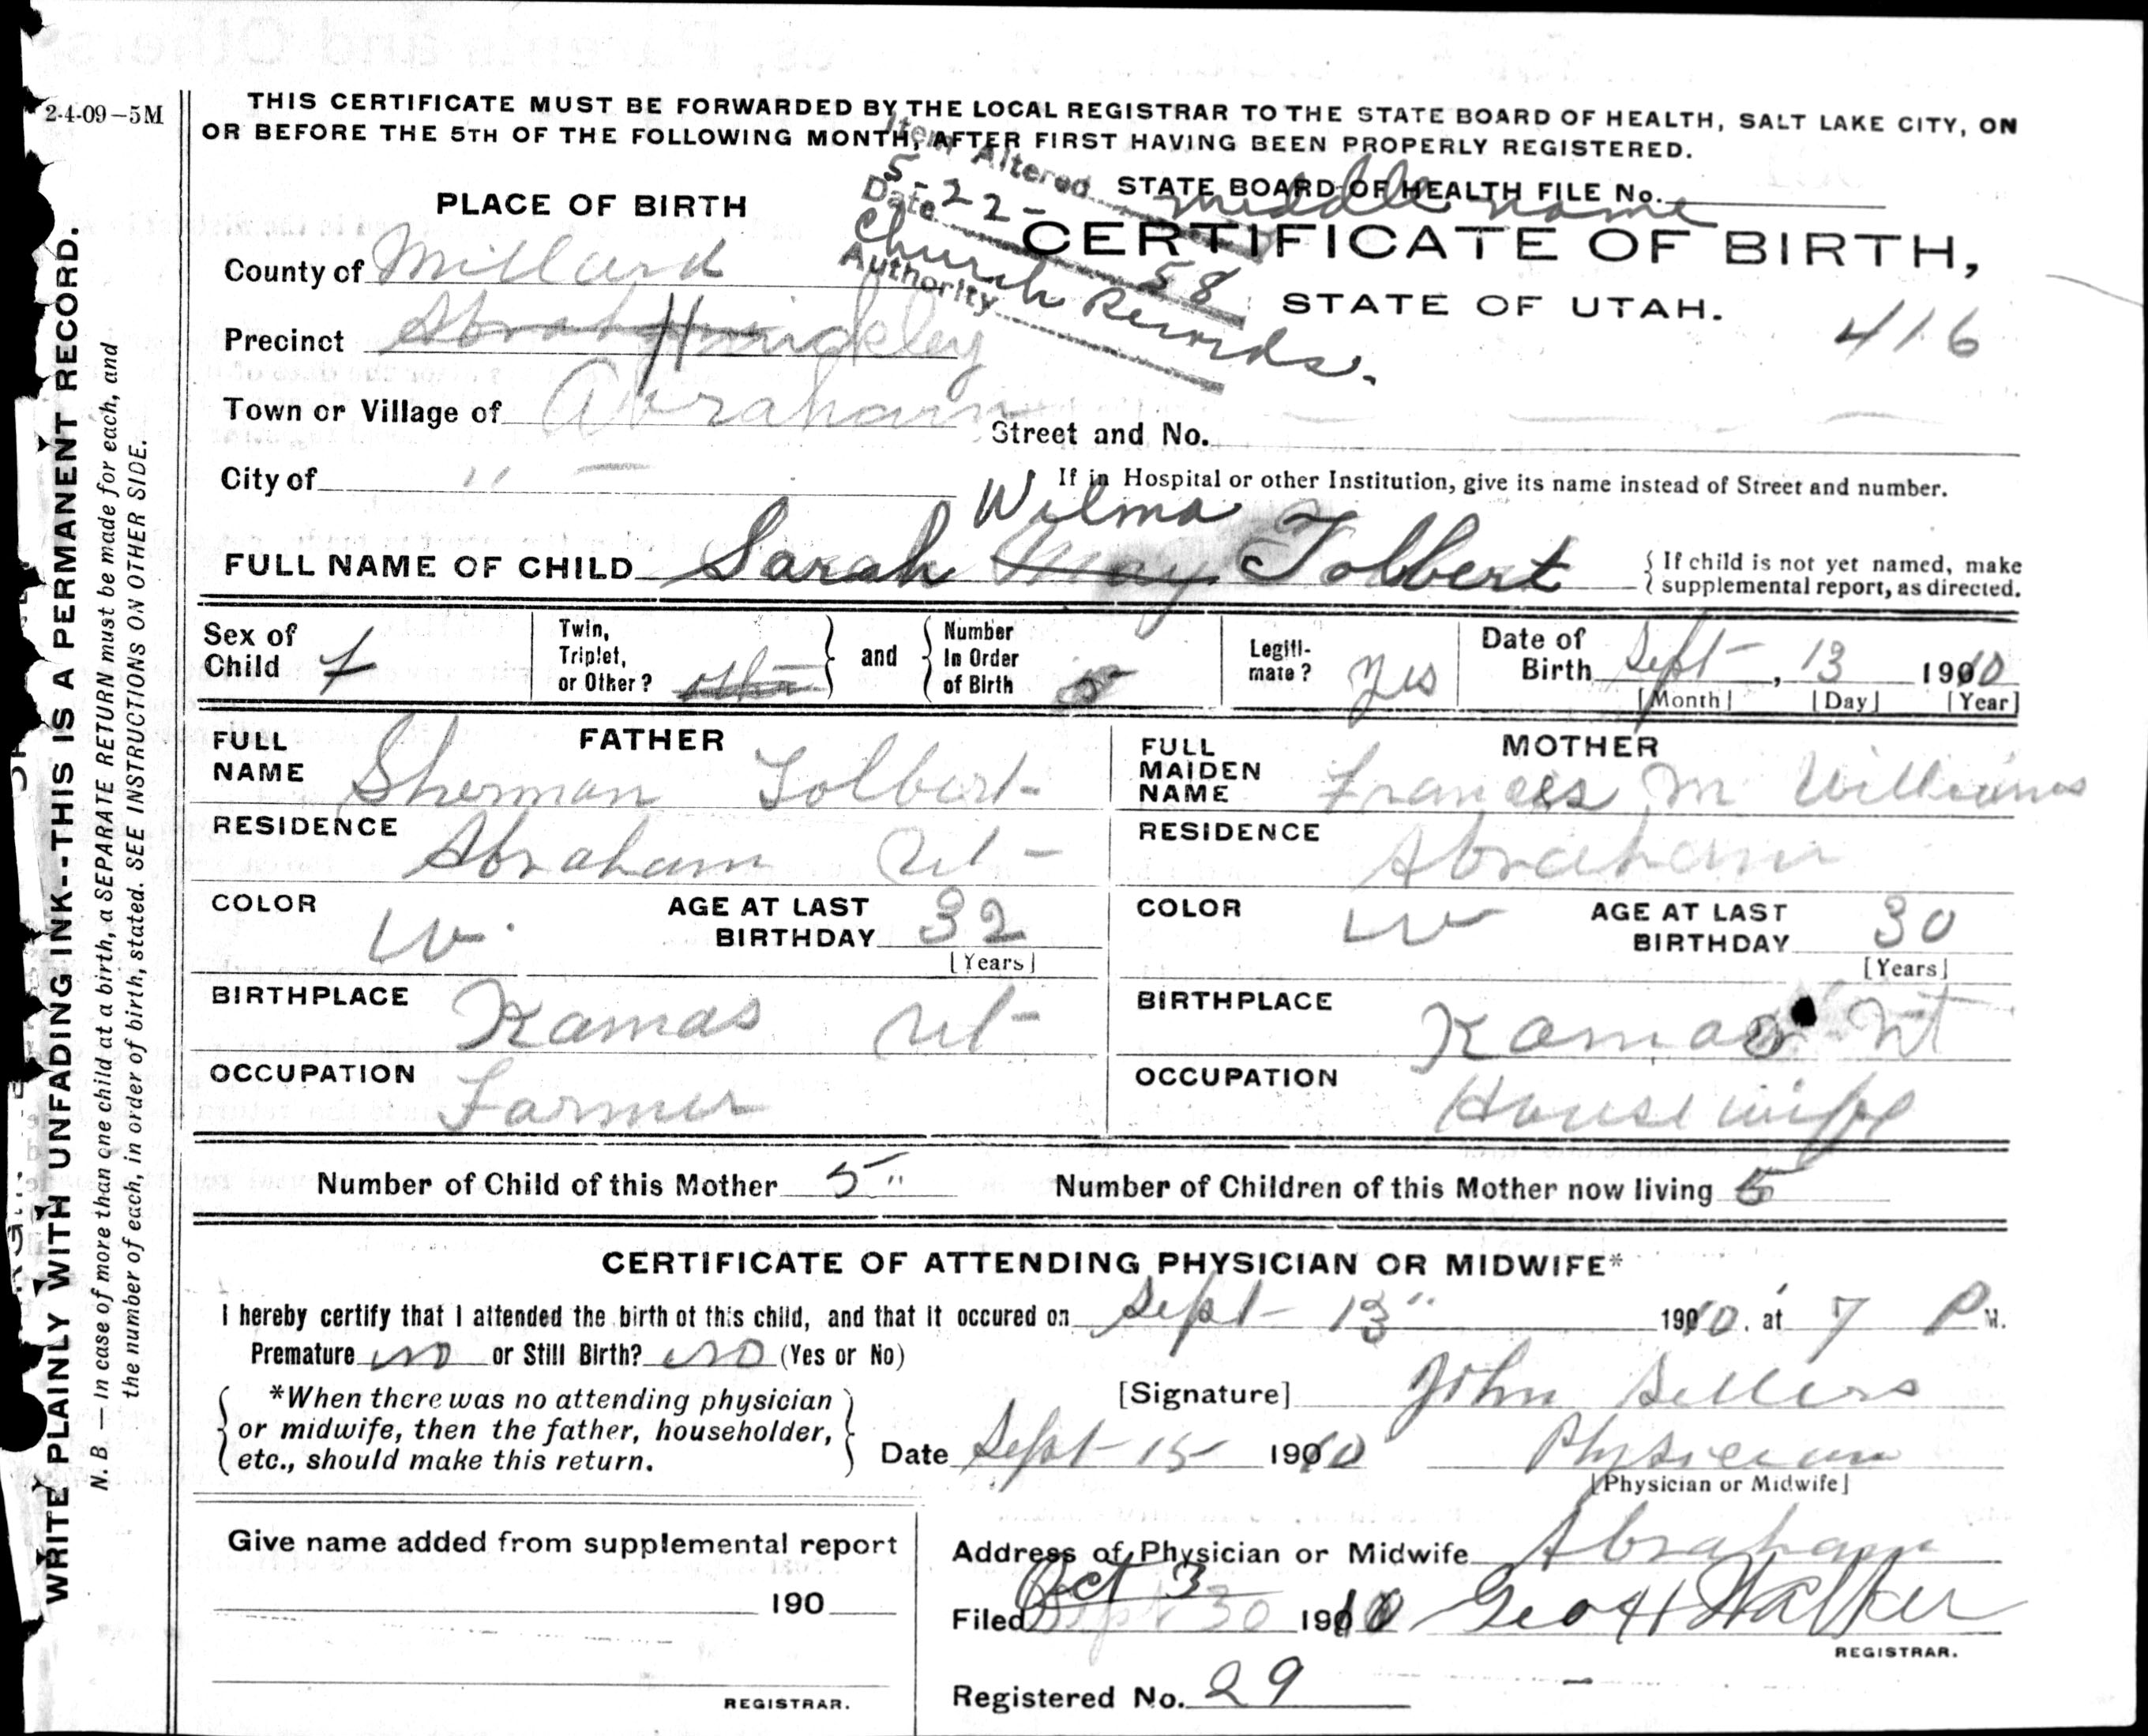 2-4-09-5M
THIS CERTIFICATE MUST BE FORWARDED BY THE LOCAL REGISTRAR TO THE STATE BOARD OF HEALTH, SALT LAKE CITY, ON
OR BEFORE THE 5TH OF THE FOLLOWING MONTH, AFTER FIRST HAVING BEEN PROPERLY REGISTERED.
Item Altered middle name
Date 5-22-58
Authority Church Records.
STATE BOARD OF HEALTH FILE No.
PLACE OF BIRTH
CERTIFICATE OF BIRTH,
STATE OF UTAH.
416
County of Millard
Precinct Abraham Hinckley
Town or Village of Abraham
Street and No.
City of " —
If in Hospital or other Institution, give its name instead of Street and number.
Wilma
FULL NAME OF CHILD Sarah May Tolbert
{ If child is not yet named, make
supplemental report, as directed.
Sex of Child f
Twin, Triplet, or Other? other } and { Number In Order of Birth 5
Legiti-mate? Yes
Date of Birth Sept-, 13 1910
[Month] [Day] [Year]
FATHER
FULL NAME Sherman Tolbert
RESIDENCE Abraham Ut-
COLOR W. AGE AT LAST BIRTHDAY 32
[Years]
BIRTHPLACE Kamas Ut-
OCCUPATION Farmer
MOTHER
FULL MAIDEN NAME Frances M Williams
RESIDENCE Abraham
COLOR W AGE AT LAST BIRTHDAY 30
[Years]
BIRTHPLACE Kamas Ut
OCCUPATION Housewife
Number of Child of this Mother 5" Number of Children of this Mother now living 5
CERTIFICATE OF ATTENDING PHYSICIAN OR MIDWIFE*
I hereby certify that I attended the birth of this child, and that it occured on Sept- 13" 1910, at 7 P M.
Premature no or Still Birth? no (Yes or No)
*When there was no attending physician
or midwife, then the father, householder,
etc., should make this return.
[Signature] John Sellers
Date Sept-15 1910 Physician
[Physician or Midwife]
Give name added from supplemental report
190
REGISTRAR.
Address of Physician or Midwife Abraham
Oct 3
Filed Sept 30 1910 Geo H Walker
REGISTRAR.
Registered No. 29
WRITE PLAINLY WITH UNFADING INK--THIS IS A PERMANENT RECORD.
N. B. — In case of more than one child at a birth, a SEPARATE RETURN must be made for each, and
the number of each, in order of birth, stated. SEE INSTRUCTIONS ON OTHER SIDE.